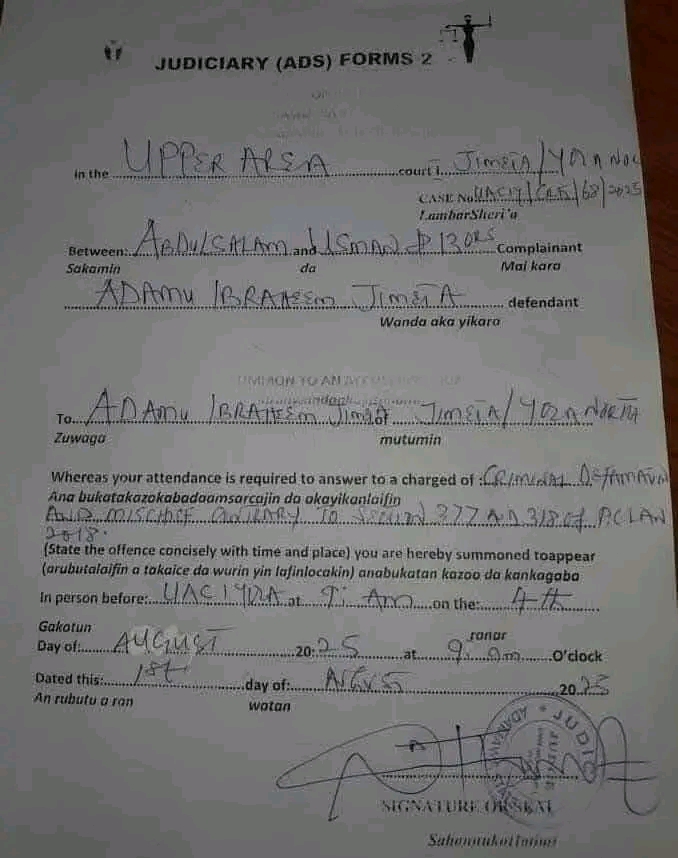 JUDICIARY (ADS) FORMS 2
in the UPPER AREA court I JIMETA/YOLA NO
CASE No UACIY/CR5/68/2025
LambarSheri'a
Between: ABDULSALAM and USMAN & 13 ORS Complainant
Sakamin da Mai kara
ADAMU IBRAHEEM JIMETA defendant
Wanda aka yikara
To ADAMU IBRAHEEM JIMETA of JIMETA/YOLA NORTH
Zuwaga mutumin
Whereas your attendance is required to answer to a charged of :CRIMINAL DEFAMATION
Ana bukatakazokabadaamsarcajin da akayikanlaifin
AND MISCHIEF CONTRARY TO SECTION 377 AND 318 of PCLAN
2018.
(State the offence concisely with time and place) you are hereby summoned toappear
(arubutalaifin a takaice da wurin yin lafinlocakin) anabukatan kazoo da kankagaba
In person before: UACI YOLA at 9: Am on the: 4th
Gakotun ranar
Day of: AUGUST 20: 25 at 9: am O'clock
Dated this: 1st day of: AUGUST 2025
An rubutu a ran watan
JUDIC
ADAMAWA STATE
SIGNATURE OR SEAL